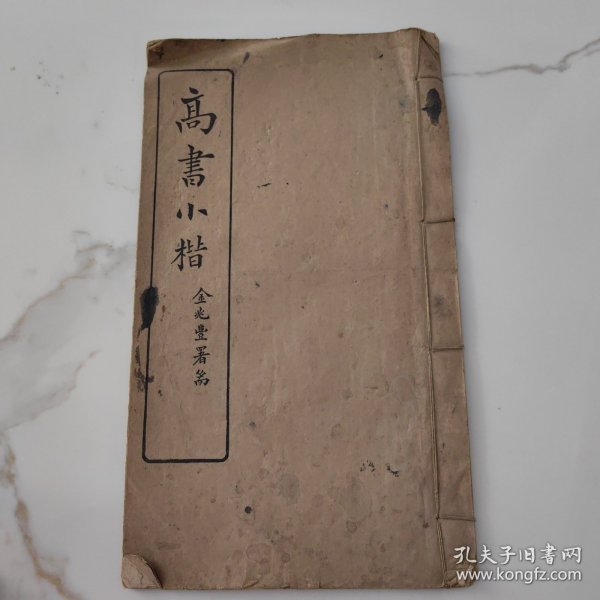 高書小楷
金兆豐署耑
孔夫子旧书网
www.kongfz.com